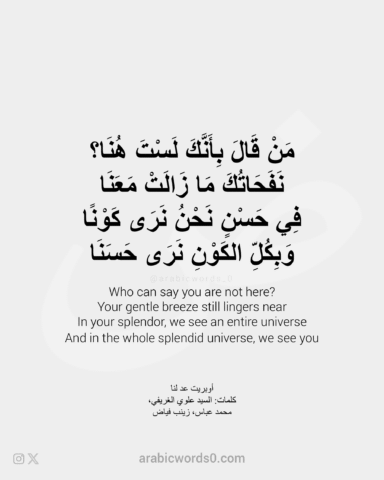 مَنْ قَالَ بِأَنَّكَ لَسْتَ هُنَا؟
نَفَحَاتُكَ مَا زَالَتْ مَعَنَا
فِي حَسْنٍ نَحْنُ نَرَى كَوْنًا
وَبِكُلِّ الكَوْنِ نَرَى حَسَنَا
@arabicwords.0
Who can say you are not here?
Your gentle breeze still lingers near
In your splendor, we see an entire universe
And in the whole splendid universe, we see you
أوبريت عد لنا
كلمات: السيد علوي الغريفي،
محمد عباس، زينب فياض
arabicwords0.com